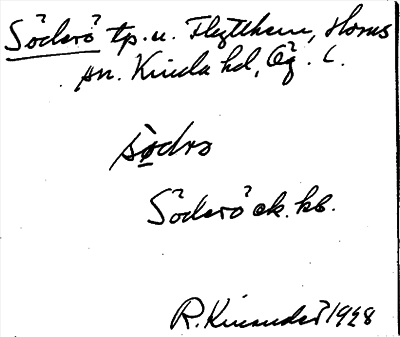 Söderö tp. u. Flytthem, Horns
sn. Kinda hd, Ög. l.
södrə
Söderö ek. kb.
R. Kinander 1928